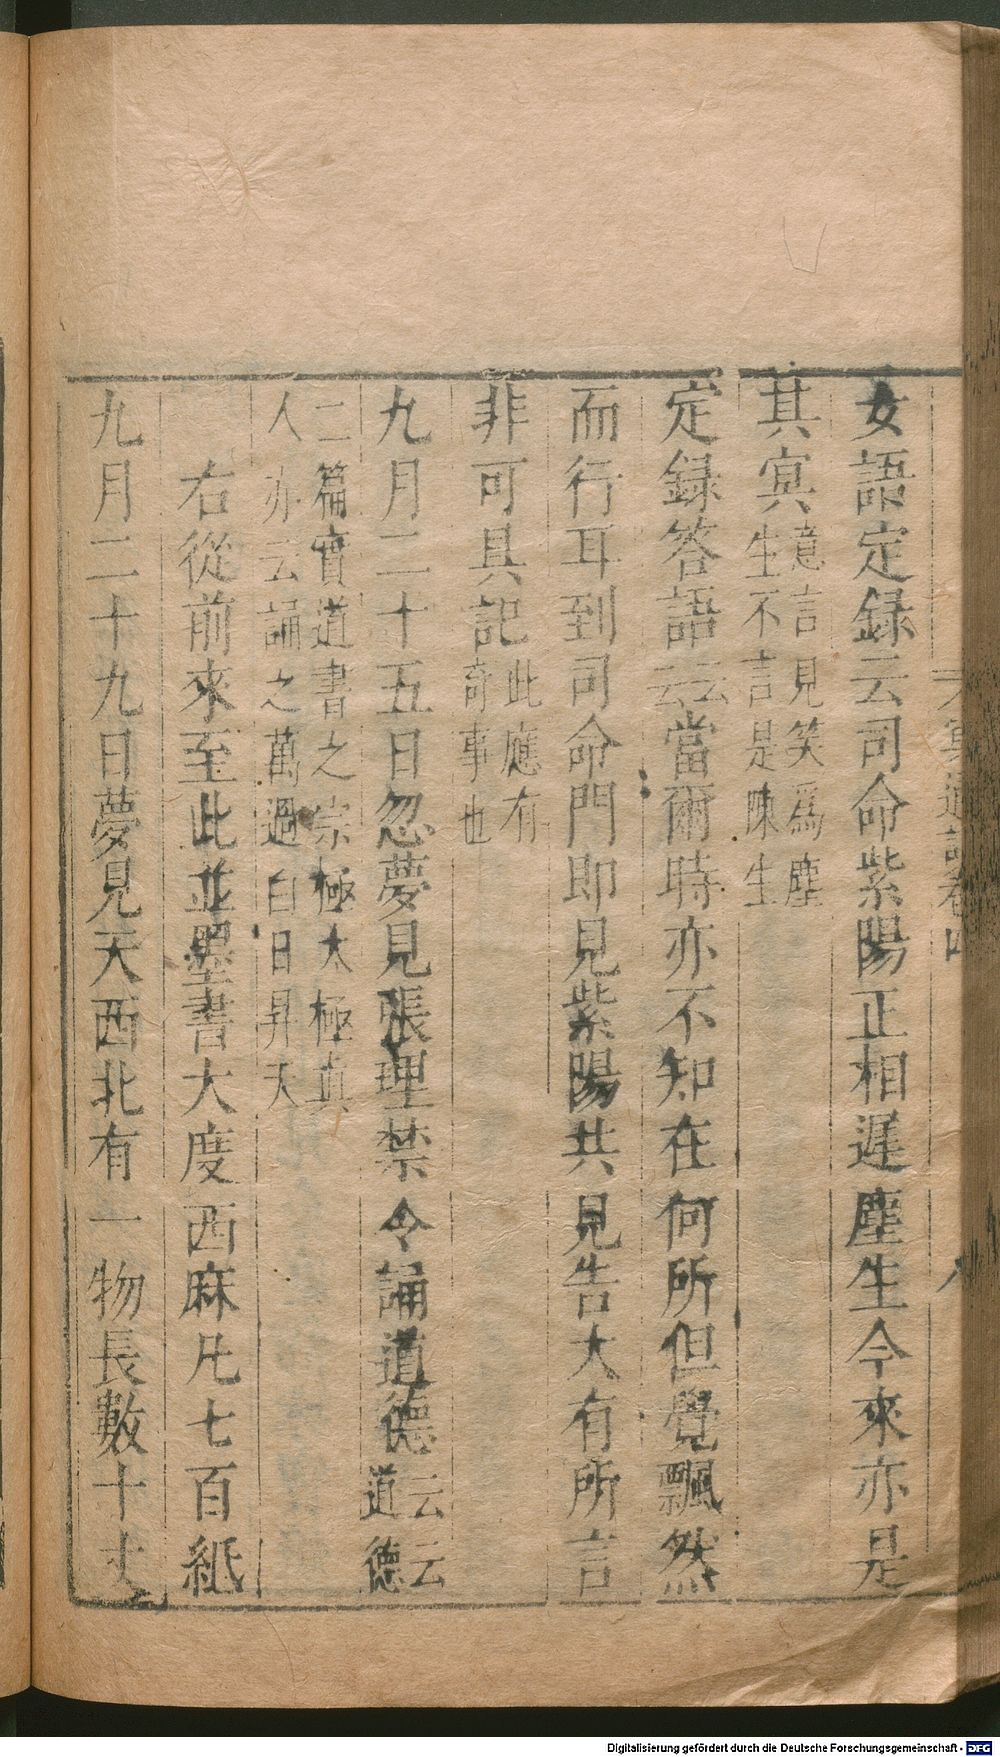 女語定録云司命紫陽正相遲塵生今來亦是
其㝠意言見笑爲塵生不言是陳生
定録答語云云當爾時亦不知在何所但覺飄然
而行耳到司命門即見紫陽共見告大有所言
非可具記此應有奇事也
九月二十五日忽夢見張理禁令誦道德云云道德
二篇實道書之宗極太極真人亦云誦之萬過白日昇天
右從前來至此並墨書大度西麻凡七百紙
九月二十九日夢見天西北有一物長數十丈
Digitalisierung gefördert durch die Deutsche Forschungsgemeinschaft - DFG